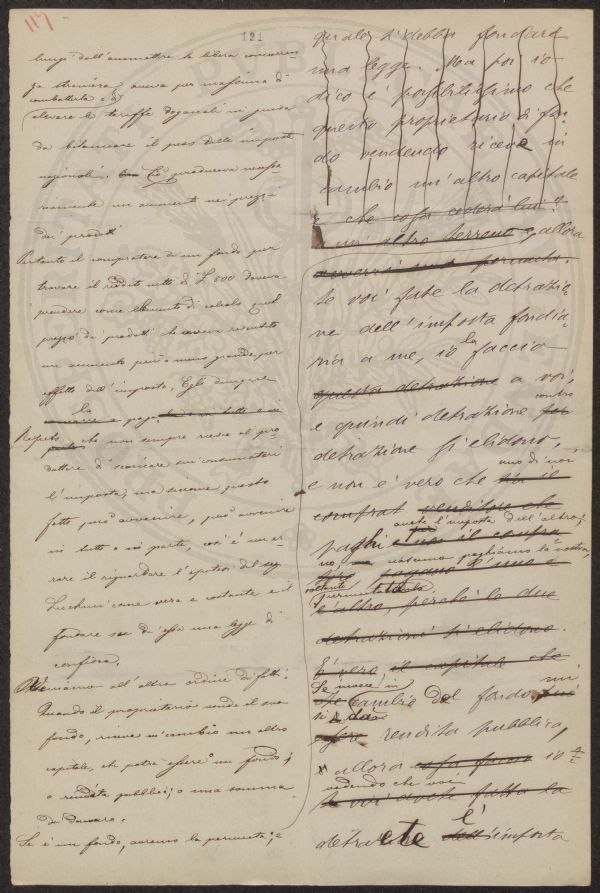 117
121
lungi dall'ammettere la libera concorren
za straniera, aveva per massima di
combatterla e di
elevare le tariffe doganali in guisa
da bilanciare il peso delle imposte
nazionali. Ciò produceva necessa
riamente un aumento nei prezzi
dei prodotti
Pertanto il compratore di un fondo per
trovare il reddito netto di £ 800 doveva
prendere come elemento di calcolo quel
prezzo di prodotti che aveva risentito
un aumento più o meno grande per
effetto dell'imposta. Egli dunque
la
paga
Ripeto che non sempre riesce al pro
duttore di scaricare sui consumatori
l'imposta, ma siccome questo
fatto può avvenire, può avvenire
in tutto o in parte, così è un er
rore il riguardare l'ipotesi del
come vera e costante e il
fondare su di essa una legge di
confisca.
Veniamo all'altro ordine di fatti.
Quando il proprietario vende il suo
fondo, riceve in cambio un altro
capitale, che potrà essere o un fondo;
o rendita pubblica; o una somma
di danaro.
Se è un fondo, avremo la permuta; e
quale si debba fondare
una legge. Ma poi io
dico è possibilissimo che
questo proprietario di fon
do vendendo riceva in
cambio un'altro capitale
e che cosa cederà lui?
un altro terreno e allora
se voi fate la detrazio
ne dell'imposta fondia
ria a me, io la faccio
questa detrazione a voi,
contro
e quindi detrazione per
detrazione si elidono,
uno di noi
e non è vero che
comprat venditore che
anche l'imposta dell'altro;
paghi
no, nessuno paghiamo la nostra,
pagano l'uno e
l'altro, perchè le due
detrazioni si elidono.
È vero il capitale che
Se invece in
cambio del fondo mi
si dà
rendita pubblica,
allora io
vedendo che voi
se voi avete fatta la
detraete l'imposta